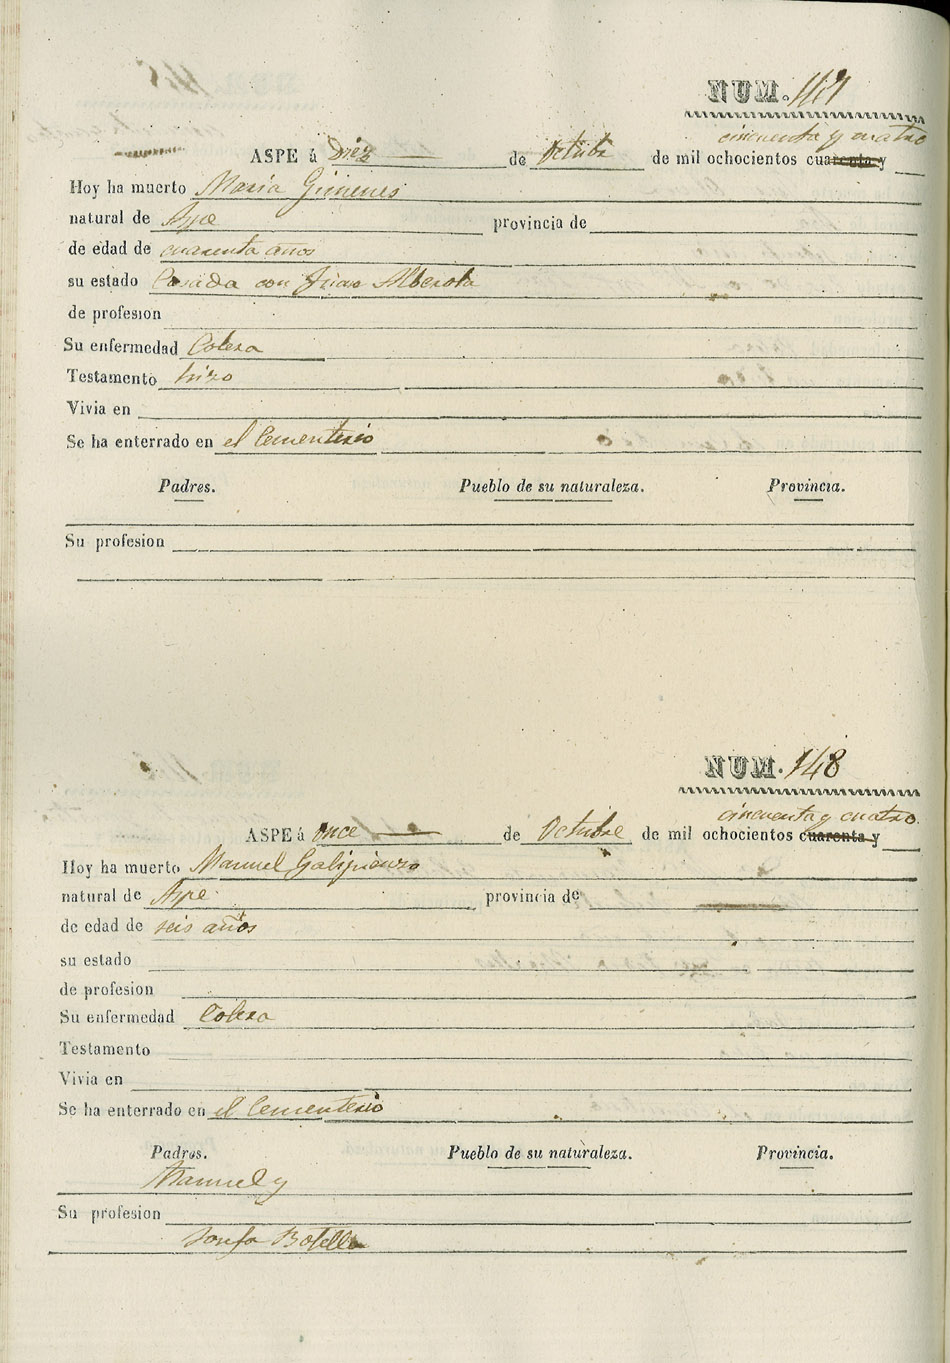 NUM. 147
cincuenta y cuatro
ASPE á Diez de Octubre de mil ochocientos cuarenta y
Hoy ha muerto Maria Gimenes
natural de Aspe provincia de
de edad de cuarenta años
su estado Casada con Juan Alberola
de profesion
Su enfermedad Colera
Testamento hizo
Vivia en
Se ha enterrado en el Cementerio
Padres. Pueblo de su naturaleza. Provincia.
Su profesion
NUM. 148
cincuenta y cuatro.
ASPE á once de Octubre de mil ochocientos cuarenta y
Hoy ha muerto Manuel Galipienzo
natural de Aspe provincia de
de edad de seis años
su estado
de profesion
Su enfermedad Colera
Testamento
Vivia en
Se ha enterrado en el Cementerio
Padres. Pueblo de su naturaleza. Provincia.
Manuel y
Su profesion
Josefa Botella